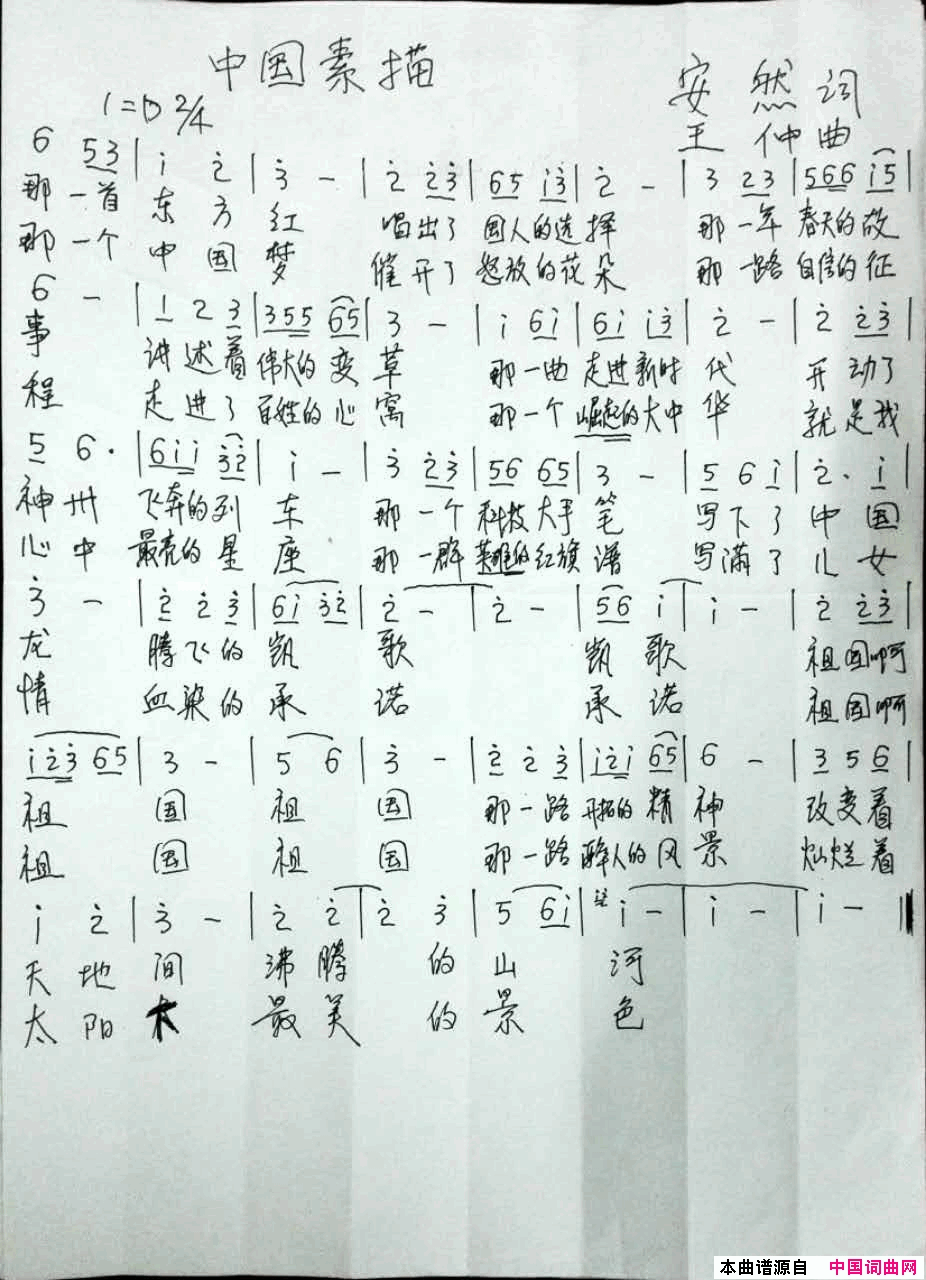 中国素描
1=D 2/4
安然词
王仲曲
6 53 | i 2̇ | 3̇ - | 2̇ 2̇3̇ | 65 i3̇ | 2̇ - | 3 23 | 566 i5 |
那一首东方红 唱出了国人的选择 那一年春天的故
那一个中国梦 催开了怒放的花朵 那一路自信的征
6 - | 1 2 3 | 355 65 | 3 - | i 6i | 6i i3̇ | 2̇ - | 2̇ 2̇3̇ |
事 讲述着伟大的变革 那一曲走进新时代 开动了
程 走进了百姓的心窝 那一个崛起的大中华 就是我
5 6· | 6ii 3̇2̇ | i - | 3̇ 2̇3̇ | 56 65 | 3 - | 5 6 i | 2̇· i |
神州飞奔的列车 那一个科技大手笔 写下了中国
心中最亮的星座 那一群英雄的红族谱 写满了儿女
3̇ - | 2̇ 2̇ 3̇ | 6i 3̇2̇ | 2̇ - | 2̇ - | 56 i | i - | 2̇ 2̇3̇ |
龙 腾飞的凯歌 凯歌 祖国啊
情 血染的承诺 承诺 祖国啊
i2̇3̇ 65 | 3 - | 5 6 | 3̇ - | 2̇ 2̇ 3̇ | i2̇i 65 | 6 - | 3 5 6 |
祖国 祖国 那一路开拓的精神 改变着
祖国 祖国 那一路醉人的风景 灿烂着
i 2̇ | 3̇ - | 2̇ 2̇ | 2̇ 3̇ | 5 6i | i - | i - | i - ||
天地间 沸腾的山河
太阳 最美的景色
本曲谱源自 中国词曲网